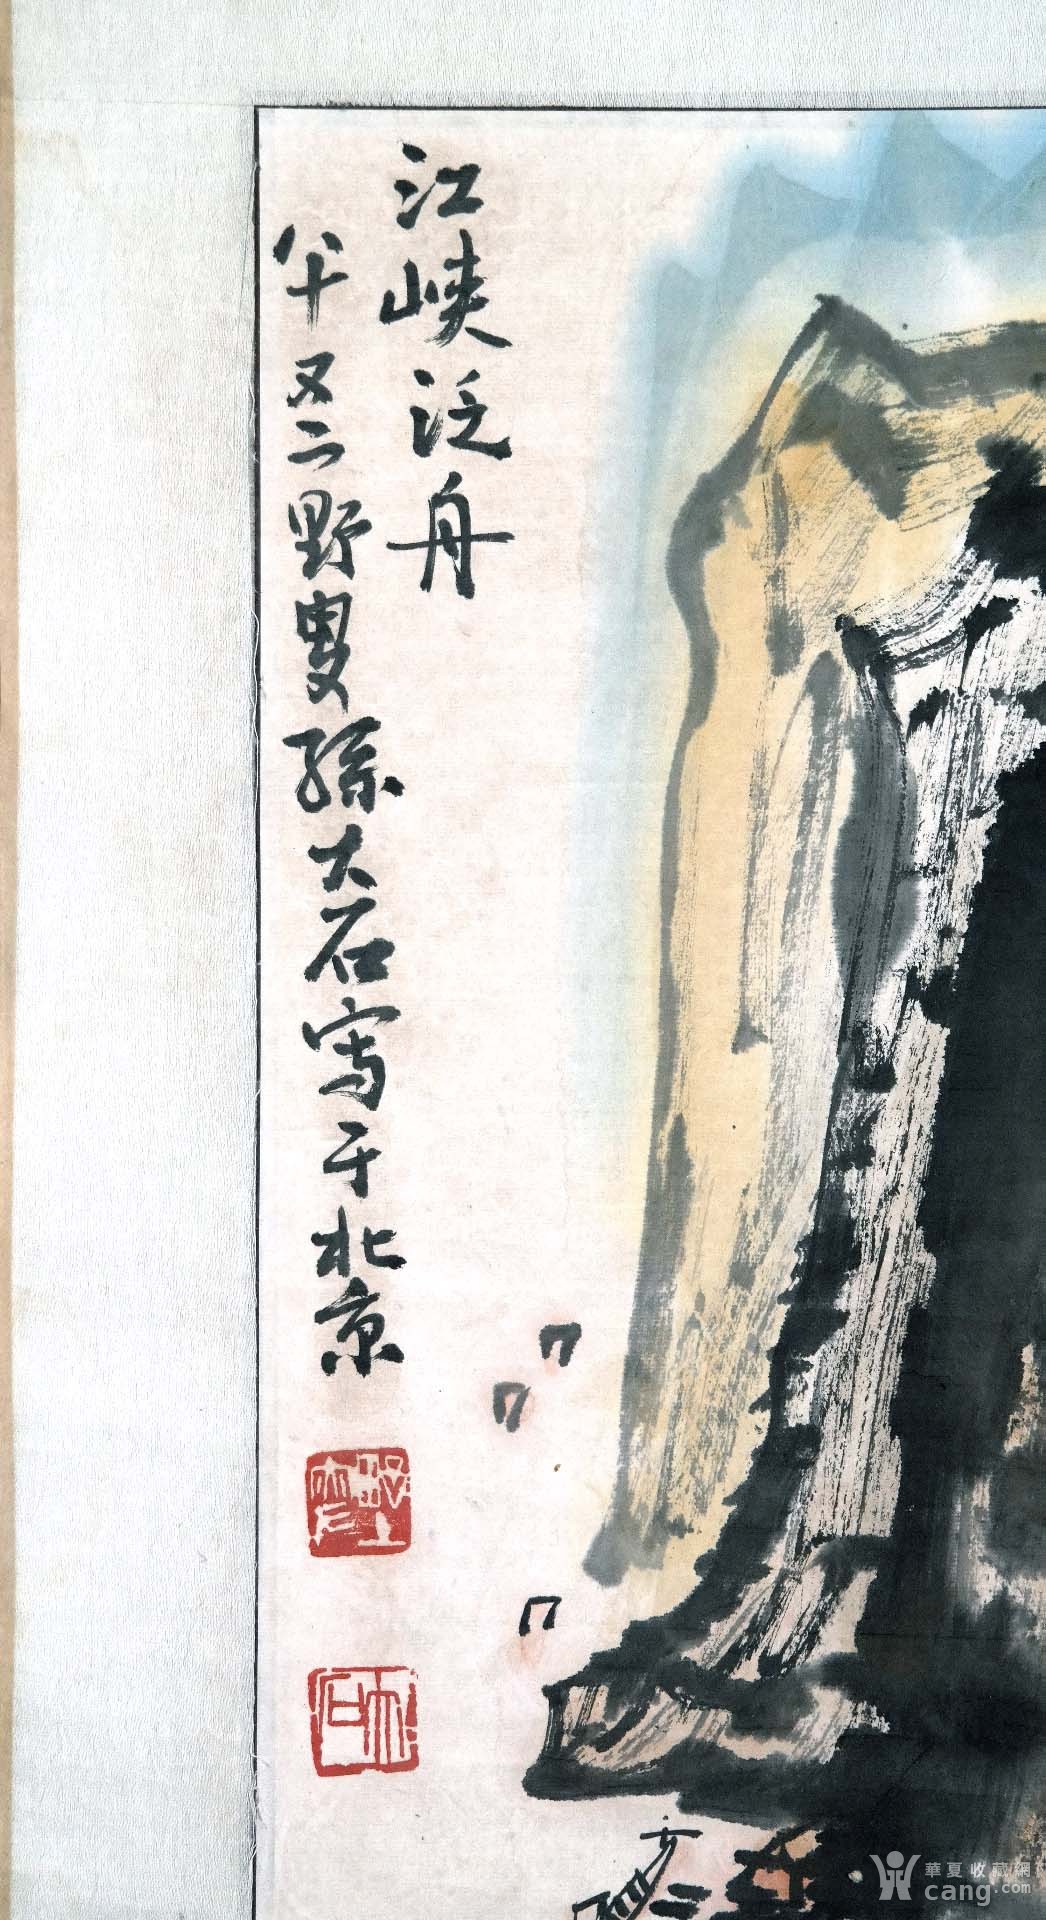 江峡泛舟
八十又二野叟孫大石寫于北京
大石
華夏收藏網
cang.com